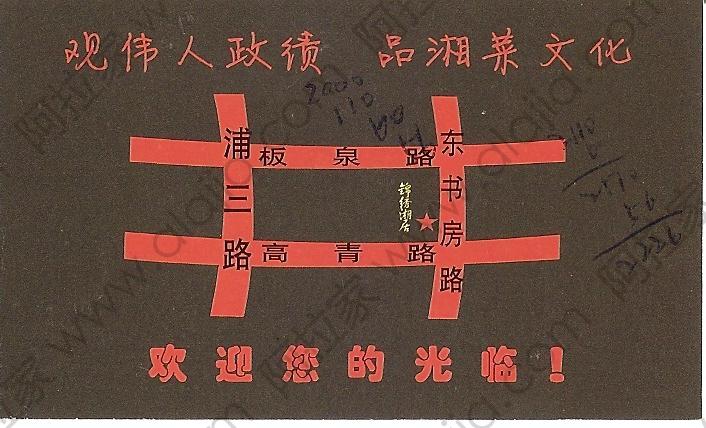 观伟人政绩 品湘菜文化
浦三路
板泉路
东书房路
锦绣湘居
高青路
欢迎您的光临！
2000
110
阿拉家 www.alajia.com